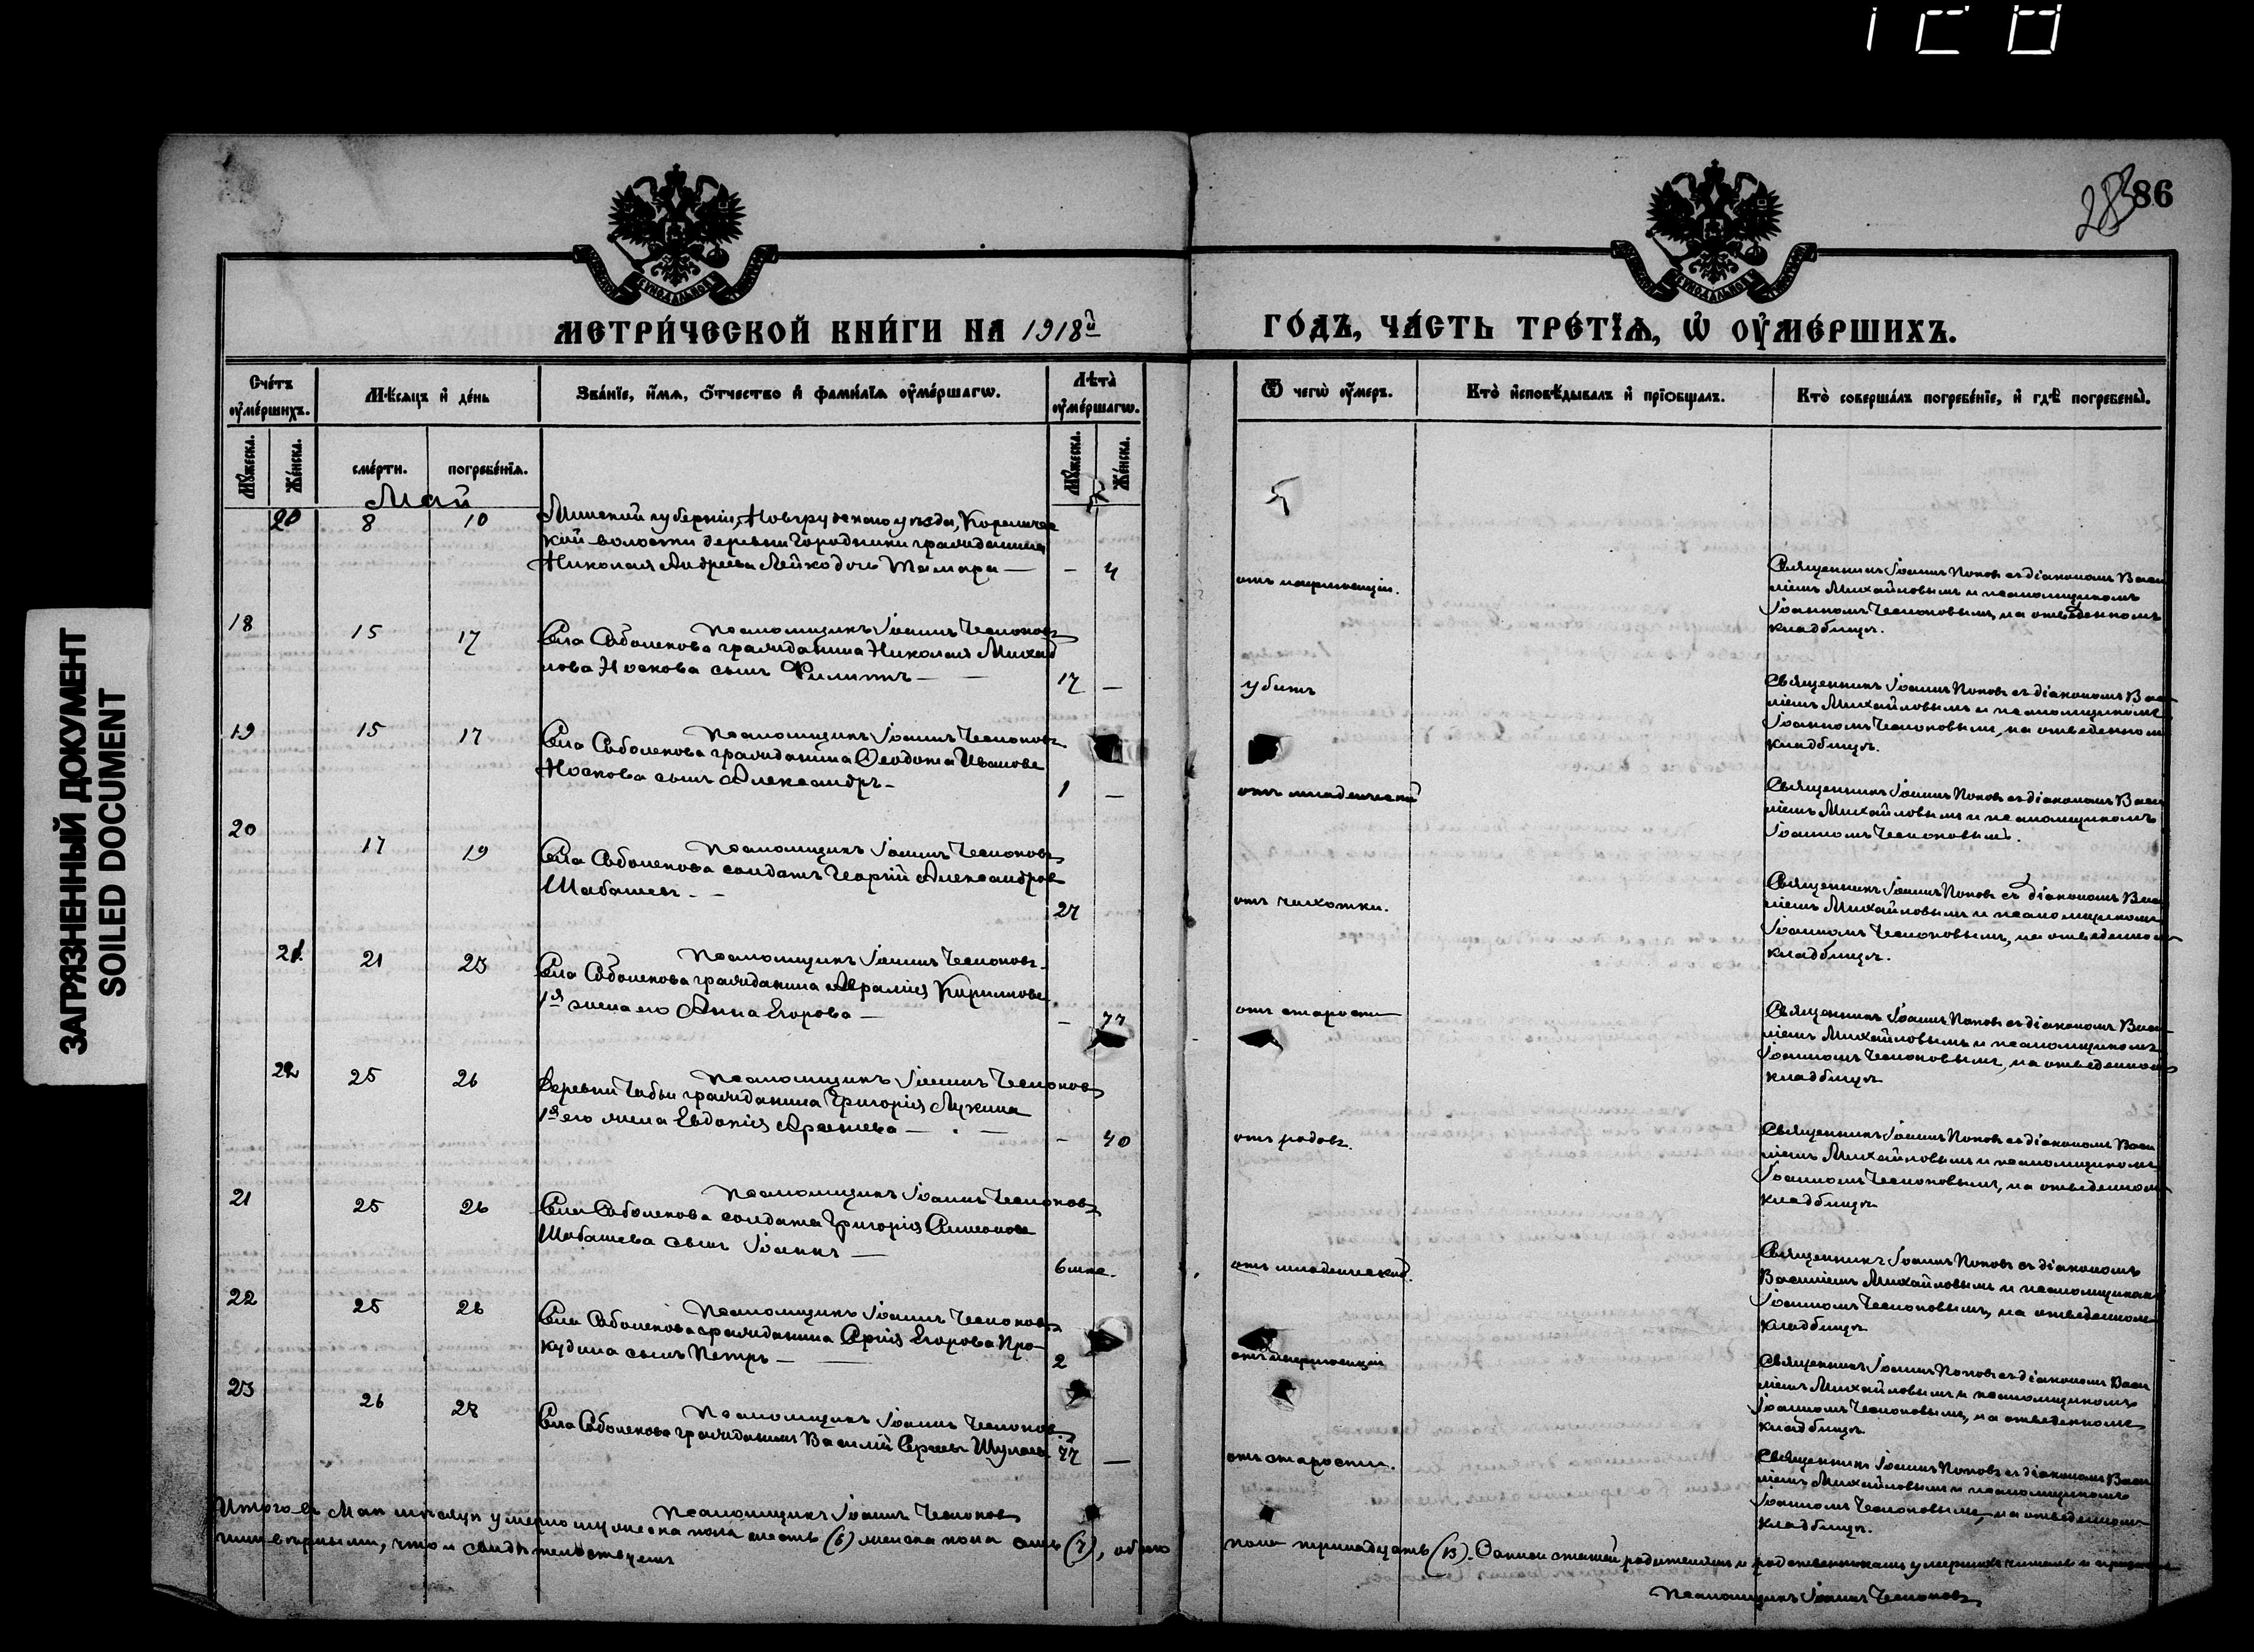 ЗАГРЯЗНЕННЫЙ ДОКУМЕНТ
SOILED DOCUMENT
283
86
МЕТРИ́ЧЕСКОЙ КНИ́ГИ НА 1918й
ГО́ДЪ, ЧА́СТЬ ТРЕ́ТЇѦ, Ѡ҆ ОУ҆МЕ́РШИХЪ.
Сче́тъ оу҆ме́ршихъ.
Мѣ́сѧцъ и҆ де́нь
Зва́нїе, и҆́мѧ, ѻ҆́тчество и҆ фами́лїѧ оу҆ме́ршагѡ.
Лѣ́та оу҆ме́ршагѡ.
Ѿ чегѡ̀ оу҆́меръ.
Кто̀ и҆сповѣ́дывалъ и҆ прїѻбща́лъ.
Кто̀ соверша́лъ погребе́нїе, и҆ гдѣ̀ погребены̀.
Мꙋ́жеска.
Же́нска.
сме́рти.
погребе́нїѧ.
Мꙋ́жеска.
Же́нска.
Май
20 8 10 Минской губерніи, Новгрудскаго уѣзда, Кореличс
кой волости деревни Городники гражданина
Николая Андреева Лейко дочь Тамара — — 4
Священникъ Іоаннъ Поповъ съ діакономъ Васи
ліемъ Михайловымъ и псаломщикомъ
Іоанномъ Чесноковымъ, на отведенномъ
кладбищѣ.
Псаломщикъ Іоаннъ Чесноковъ
18 15 17 Села Соболекова гражданина Николая Михай
лова Носкова сынъ Филиппъ — 17 —
убитъ
Священникъ Іоаннъ Поповъ съ діакономъ Васи
ліемъ Михайловымъ и псаломщикомъ
Іоанномъ Чесноковымъ, на отведенномъ
кладбищѣ.
Псаломщикъ Іоаннъ Чесноковъ
19 15 17 Села Соболекова гражданина Ѳеодота Иванова
Носкова сынъ Александръ — 1 —
отъ младенческой
Священникъ Іоаннъ Поповъ съ діакономъ Васи
ліемъ Михайловымъ и псаломщикомъ
Іоанномъ Чесноковымъ.
Псаломщикъ Іоаннъ Чесноковъ
20 17 19 Села Соболекова солдатъ Георгій Александровъ
Шабашевъ — 27
отъ чахотки.
Священникъ Іоаннъ Поповъ съ діакономъ Васи
ліемъ Михайловымъ и псаломщикомъ
Іоанномъ Чесноковымъ, на отведенномъ
кладбищѣ.
Псаломщикъ Іоаннъ Чесноковъ
21 21 23 Села Соболекова гражданина Аврамія Кирилова
1я жена его Анна Егорова — — 77
отъ старости
Священникъ Іоаннъ Поповъ съ діакономъ Васи
ліемъ Михайловымъ и псаломщикомъ
Іоанномъ Чесноковымъ, на отведенномъ
кладбищѣ
Псаломщикъ Іоаннъ Чесноковъ
22 25 26 Деревни Чабьи гражданина Григорія Лукина
1я его жена Евдокія — — 40
отъ родовъ.
Священникъ Іоаннъ Поповъ съ діакономъ Васи
ліемъ Михайловымъ и псаломщикомъ
Іоанномъ Чесноковымъ, на отведенномъ
кладбищѣ
Псаломщикъ Іоаннъ Чесноковъ
21 25 26 Села Соболекова солдата Григорія Симеонова
Шабашева сынъ Іоаннъ — 6 мѣс.
отъ младенческой.
Священникъ Іоаннъ Поповъ съ діакономъ
Василіемъ Михайловымъ и псаломщикомъ
Іоанномъ Чесноковымъ, на отведенномъ
кладбищѣ
Псаломщикъ Іоаннъ Чесноковъ
22 25 26 Села Соболекова гражданина Сергія Егорова Про-
кудина сынъ Петръ — 2
Священникъ Іоаннъ Поповъ съ діакономъ Васи
ліемъ Михайловымъ и псаломщикомъ
Іоанномъ Чесноковымъ, на отведенномъ
кладбищѣ
Псаломщикъ Іоаннъ Чесноковъ
23 26 28 Села Соболекова гражданинъ Василій Сергѣевъ 77 —
отъ старости.
Священникъ Іоаннъ Поповъ съ діакономъ Васи
ліемъ Михайловымъ и псаломщикомъ
Іоанномъ Чесноковымъ, на отведенномъ
кладбищѣ.
Псаломщикъ Іоаннъ Чесноковъ
Итого въ Маѣ мѣсяцѣ умерло мужеска пола шесть (6) женска пола семь (7), обоего пола тринадцать (13). Записи статей родителямъ и родственникамъ умершихъ читаны и
что и свидѣтельствуетъ
Псаломщикъ Іоаннъ Чесноковъ